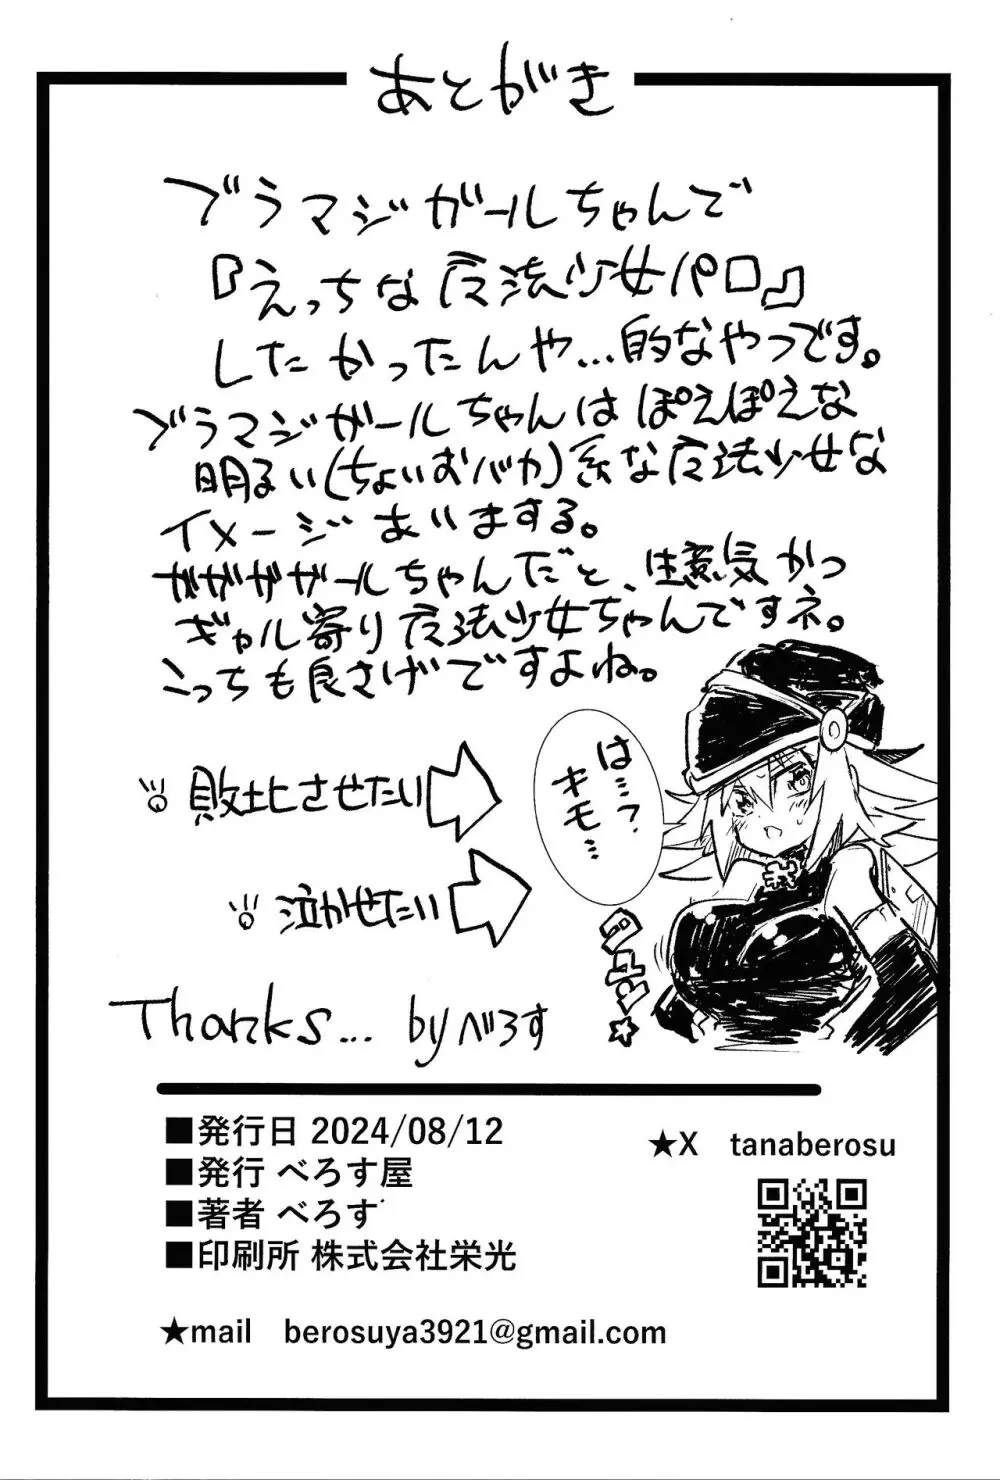 あとがき
ブラマジガールちゃんで
『えっちな魔法少女パロ』
したかったんや…的なやつです。
ブラマジガールちゃんはぽえぽえな
明るい(ちょいおバカ)系な魔法少女な
イメージあいまする。
ガガガガールちゃんだと、生意気かつ
ギャル寄り魔法少女ちゃんですネ。
こっちも良さげですよね。
敗北させたい
は…?
キモ…
泣かせたい
Thanks... by べろす
■発行日 2024/08/12
■発行 べろす屋
■著者 べろす
■印刷所 株式会社栄光
★X tanaberosu
★mail berosuya3921@gmail.com